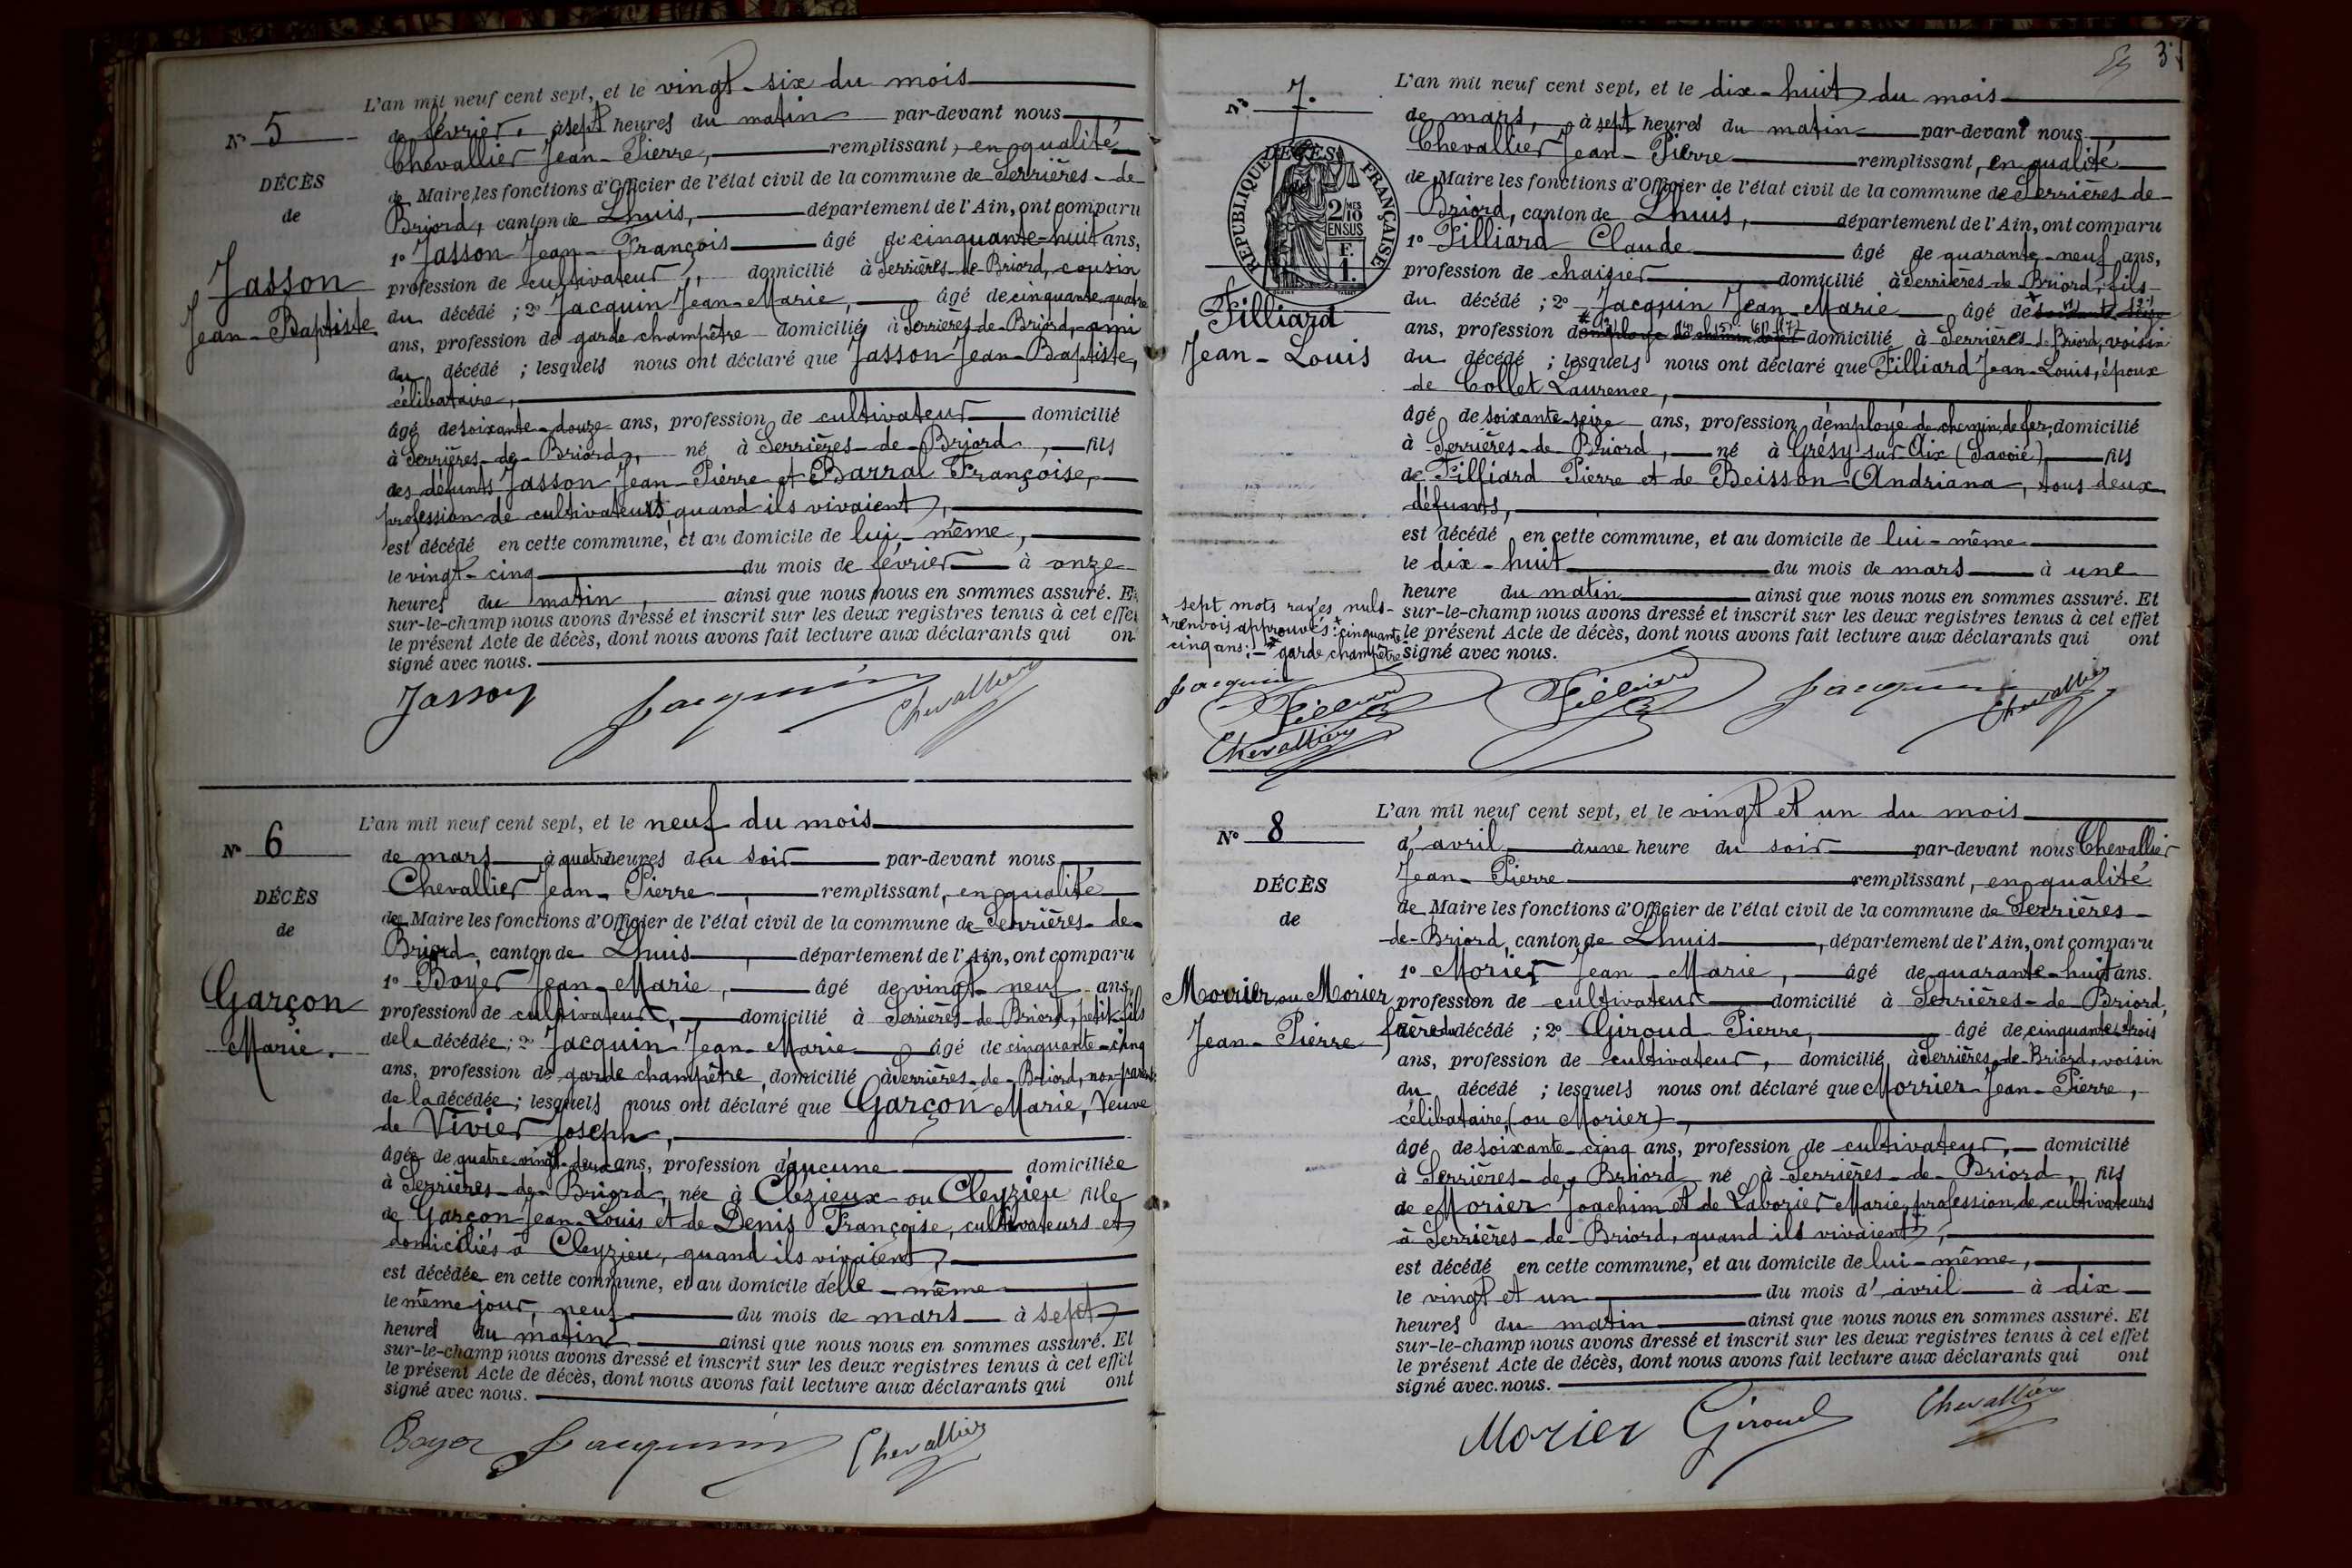 L'an mil neuf cent sept, et le vingt-six du mois
N° 5
de février, à sept heures du matin par-devant nous
Chevallier Jean-Pierre, remplissant, en qualité
DÉCÈS
de Maire, les fonctions d'Officier de l'état civil de la commune de Serrières-de-
de
Briord, canton de Lhuis, département de l'Ain, ont comparu
1° Jasson Jean-François âgé de cinquante-huit ans,
Jasson
profession de cultivateur, domicilié à Serrières-de-Briord, cousin
Jean-Baptiste
du décédé ; 2° Jacquin Jean-Marie, âgé de cinquante-quatre
ans, profession de garde champêtre domicilié à Serrières-de-Briord, ami
du décédé ; lesquels nous ont déclaré que Jasson Jean-Baptiste,
célibataire,
âgé de soixante-douze ans, profession de cultivateur domicilié
à Serrières-de-Briord, né à Serrières-de-Briord, fils
des défunts Jasson Jean-Pierre et Barral Françoise,
profession de cultivateurs, quand ils vivaient,
est décédé en cette commune, et au domicile de lui-même,
le vingt-cinq du mois de février à onze
heures du matin, ainsi que nous nous en sommes assuré. Et
sur-le-champ nous avons dressé et inscrit sur les deux registres tenus à cet effet
le présent Acte de décès, dont nous avons fait lecture aux déclarants qui on
signé avec nous.
Jasson Jacquin Chevallier
L'an mil neuf cent sept, et le neuf du mois
N° 6
de mars à quatre heures du soir par-devant nous
Chevallier Jean-Pierre, remplissant, en qualité
DÉCÈS
de Maire les fonctions d'Officier de l'état civil de la commune de Serrières-de-
de
Briord, canton de Lhuis, département de l'Ain, ont comparu
1° Boyer Jean-Marie, âgé de vingt-neuf ans,
Garçon
profession de cultivateur, domicilié à Serrières-de-Briord, petit-fils
Marie.
de la décédée ; 2° Jacquin Jean-Marie âgé de cinquante-cinq
ans, profession de garde champêtre, domicilié à Serrières-de-Briord, non-parent
de la décédée ; lesquels nous ont déclaré que Garçon Marie, Veuve
de Vivier Joseph,
âgée de quatre-vingt-deux ans, profession d'aucune domiciliée
à Serrières-de-Briord, née à Clézieux ou Cleyzieu fille
de Garçon Jean-Louis et de Denis Françoise, cultivateurs et
domiciliés à Cleyzieu, quand ils vivaient,
est décédée en cette commune, et au domicile d'elle-même
le même jour, neuf du mois de mars à sept
heures du matin, ainsi que nous nous en sommes assuré. Et
sur-le-champ nous avons dressé et inscrit sur les deux registres tenus à cet effet
le présent Acte de décès, dont nous avons fait lecture aux déclarants qui ont
signé avec nous.
Boyer Jacquin Chevallier
3
L'an mil neuf cent sept, et le dix-huit du mois
N° 7.
de mars, à sept heures du matin par-devant nous
Chevallier Jean-Pierre remplissant, en qualité
DÉCÈS
de
RÉPUBLIQUE FRANÇAISE
2/10 MES
EN SUS
F.
1.
de Maire les fonctions d'Officier de l'état civil de la commune de Serrières-de-
Briord, canton de Lhuis, département de l'Ain, ont comparu
1° Filliard Claude âgé de quarante-neuf ans,
profession de chaisier domicilié à Serrières-de-Briord, fils
Filliard
Jean-Louis
du décédé ; 2° Jacquin Jean-Marie âgé de soixante seize
ans, profession d'employé de chemin de fer domicilié à Serrières-de-Briord, voisin
du décédé ; lesquels nous ont déclaré que Filliard Jean-Louis, époux
de Collet Laurence,
âgé de soixante-seize ans, profession d'employé de chemin de fer, domicilié
à Serrières-de-Briord, né à Grésy sur Aix (Savoie) fils
de Filliard Pierre et de Beisson Andriana, tous deux
défunts,
est décédé en cette commune, et au domicile de lui-même
le dix-huit du mois de mars à une
heure du matin ainsi que nous nous en sommes assuré. Et
sur-le-champ nous avons dressé et inscrit sur les deux registres tenus à cet effet
le présent Acte de décès, dont nous avons fait lecture aux déclarants qui ont
signé avec nous.
sept mots rayés nuls-
renvois approuvés : cinquante
cinq ans ; - garde champêtre
Jacquin
Filliard
Chevallier
Filliard Jacquin Chevallier
L'an mil neuf cent sept, et le vingt et un du mois
N° 8
d'avril à une heure du soir par-devant nous Chevallier
Jean-Pierre remplissant, en qualité
DÉCÈS
de Maire les fonctions d'Officier de l'état civil de la commune de Serrières-
de
de-Briord, canton de Lhuis, département de l'Ain, ont comparu
1° Morier Jean-Marie, âgé de quarante-huit ans.
Morrier ou Morier
Jean-Pierre
profession de cultivateur domicilié à Serrières-de-Briord,
frère du décédé ; 2° Giroud Pierre, âgé de cinquante trois
ans, profession de cultivateur, domicilié à Serrières-de-Briord, voisin
du décédé ; lesquels nous ont déclaré que Morrier Jean-Pierre,
célibataire, (ou Morier),
âgé de soixante-cinq ans, profession de cultivateur, domicilié
à Serrières-de-Briord né à Serrières-de-Briord, fils
de Morier Joachim et de Laborier Marie, profession de cultivateurs
à Serrières-de-Briord, quand ils vivaient,
est décédé en cette commune, et au domicile de lui-même,
le vingt et un du mois d'avril à dix
heures du matin ainsi que nous nous en sommes assuré. Et
sur-le-champ nous avons dressé et inscrit sur les deux registres tenus à cet effet
le présent Acte de décès, dont nous avons fait lecture aux déclarants qui ont
signé avec nous.
Morier Giroud Chevallier